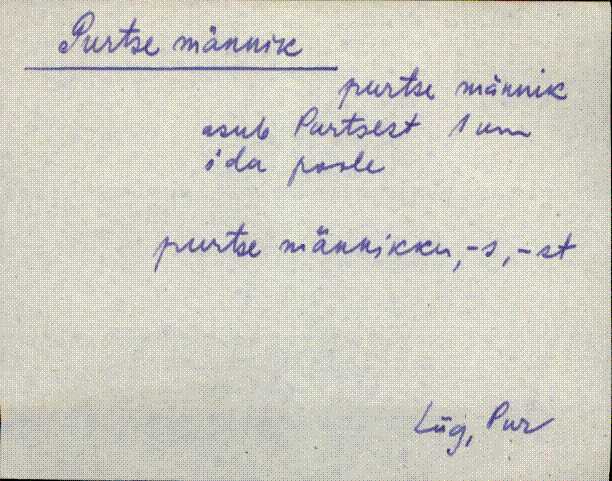 Purtse männik
purtse männik
asub Purtsest 1 km
ida poole
purtse männikku, -s, -st
Lüg, Pur